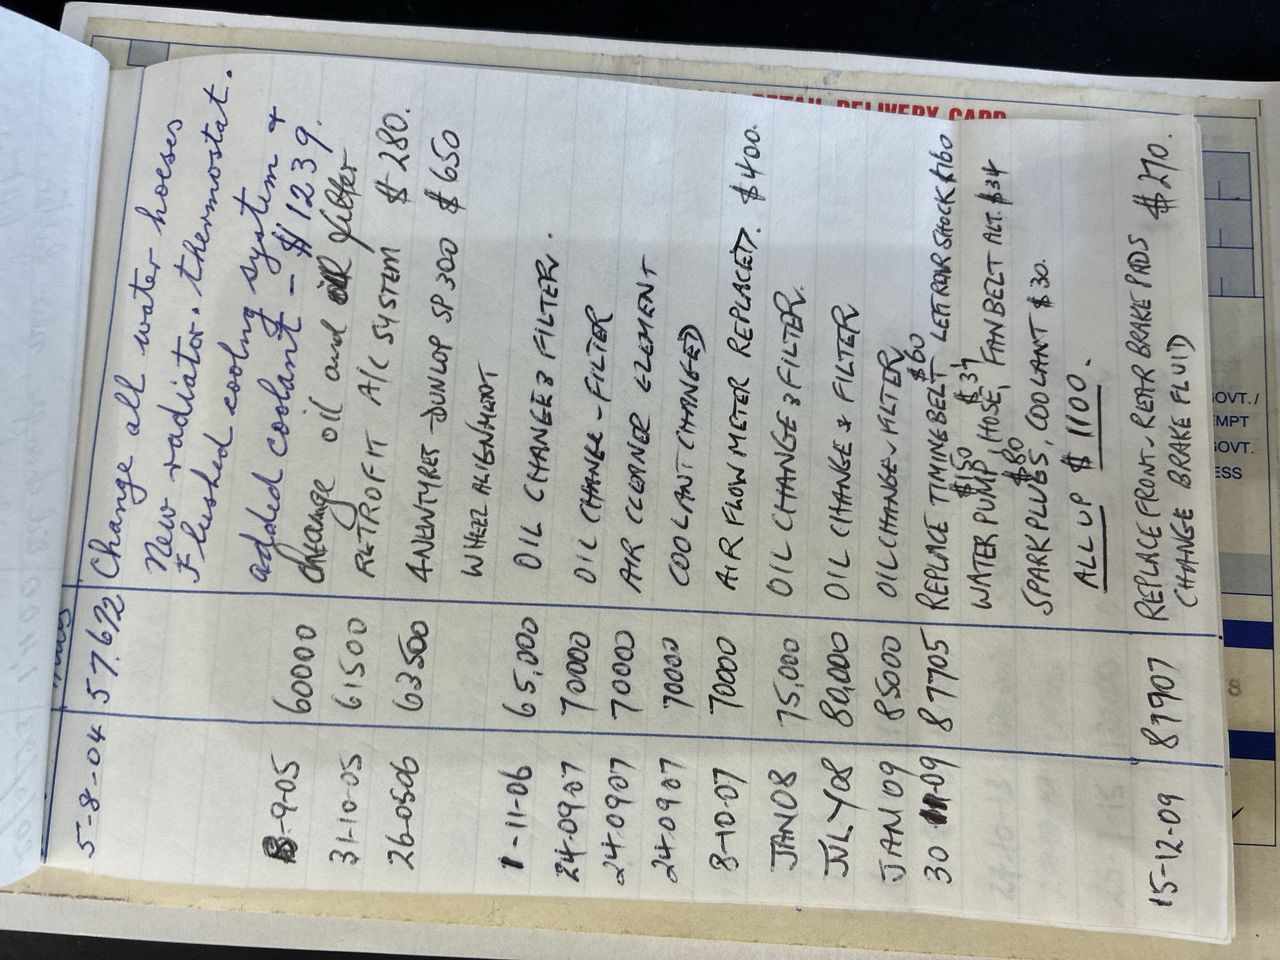 RETAIL DELIVERY CARD
5-8-04 57.672 Change all water hoeses
New radiator. thermostat.
Flushed cooling system +
added coolant - $1239.
8-9-05 60000 change oil and filter
31-10-05 61500 RETROFIT A/C SYSTEM $280.
26-0506 63500 4 NEW TYRES DUNLOP SP 300 $650
WHEEL ALIGNMENT
1-11-06 65,000 OIL CHANGE & FILTER.
24-09-07 70000 OIL CHANGE - FILTER
24.09.07 70000 AIR CLEANER ELEMENT
24-09.07 70000 COOLANT CHANGED
8-10-07 70000 AIR FLOW METER REPLACED. $400.
JAN 08 75,000 OIL CHANGE & FILTER.
JULY 08 80,000 OIL CHANGE & FILTER
JAN 09 85000 OIL CHANGE & FILTER
30 -09 87705 REPLACE TIMING BELT $60 LEFT REAR SHOCK $160
WATER PUMP $50, HOSE $37, FAN BELT ALT. $34
SPARK PLUGS $80, COOLANT $30.
ALL UP $1100.
15-12-09 87907 REPLACE FRONT - REAR BRAKE PADS $270.
CHANGE BRAKE FLUID
GOVT.